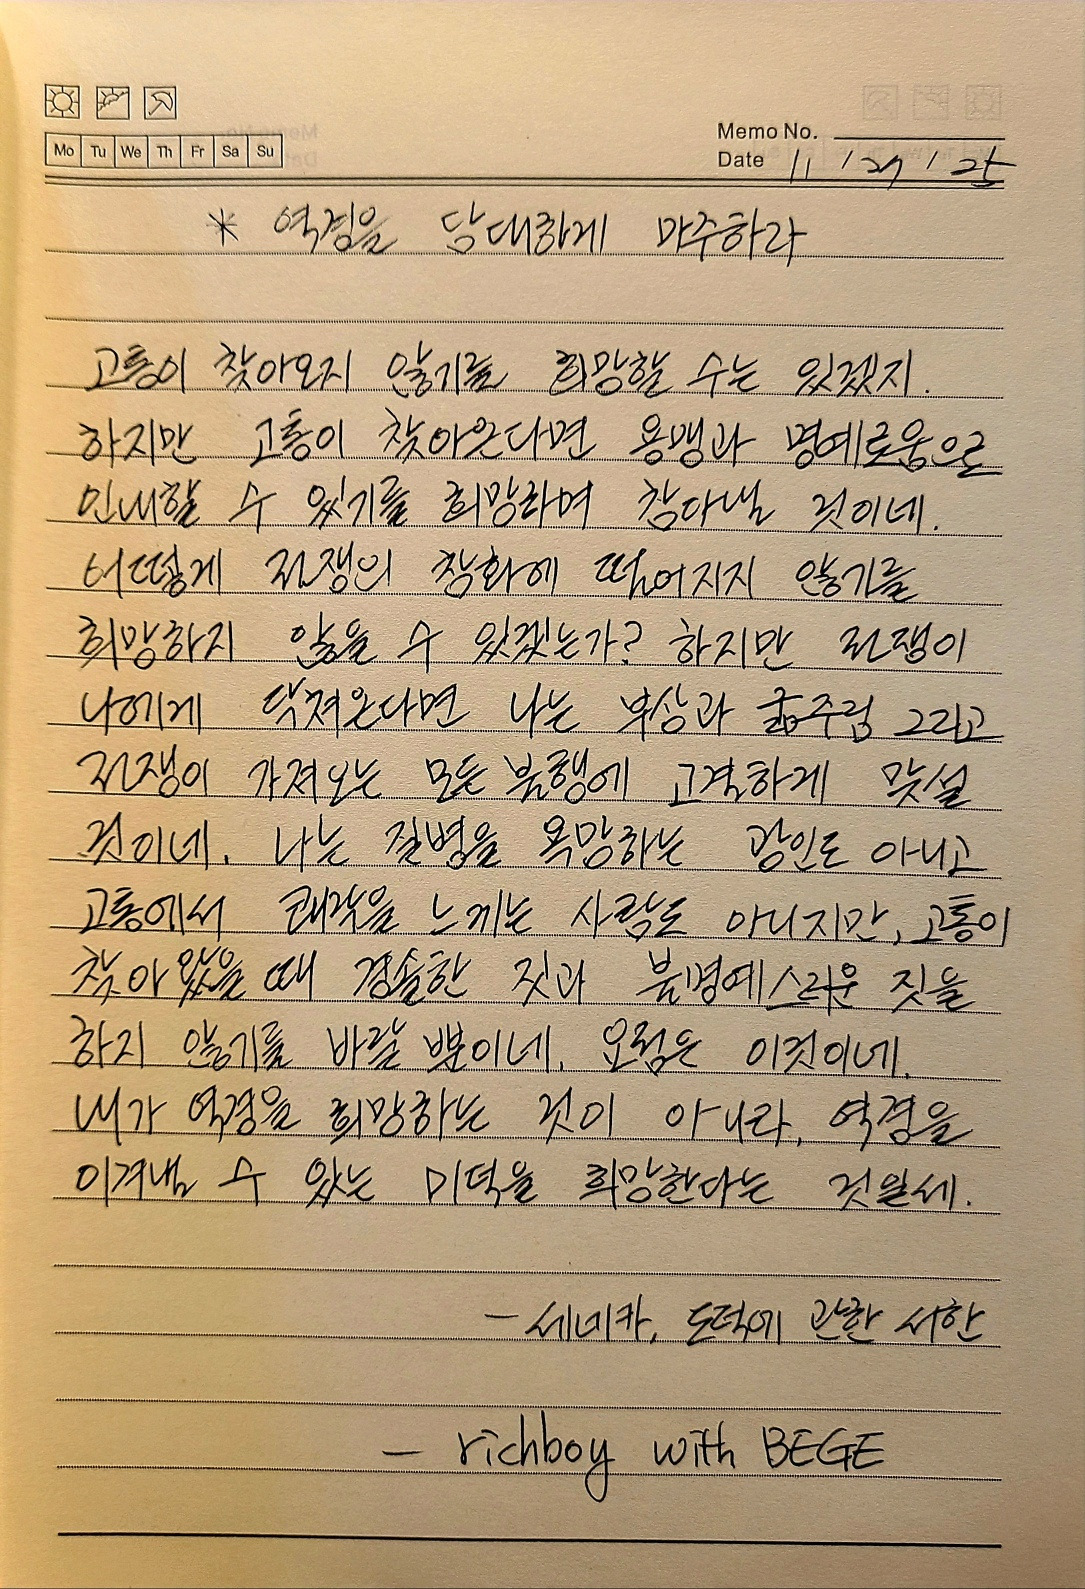 Memo No.
Mo Tu We Th Fr Sa Su
Date 11 / 27 / 25
* 역경을 담대하게 마주하라
고통이 찾아오지 않기를 희망할 수는 있겠지.
하지만 고통이 찾아온다면 용맹과 명예로움으로
인내할 수 있기를 희망하며 참다낼 것이네.
어떻게 전쟁의 참화에 떨어지지 않기를
희망하지 않을 수 있겠는가? 하지만 전쟁이
나에게 닥쳐온다면 나는 부상과 굶주림 그리고
전쟁이 가져오는 모든 불행에 고결하게 맞설
것이네. 나는 질병을 욕망하는 광인도 아니고
고통에서 쾌락을 느끼는 사람도 아니지만, 고통이
찾아왔을 때 경솔한 짓과 불명예스러운 짓을
하지 않기를 바랄 뿐이네. 요점은 이것이네.
내가 역경을 희망하는 것이 아니라, 역경을
이겨낼 수 있는 미덕을 희망한다는 것일세.
- 세네카, 도덕에 관한 서한
- richboy with BEGE